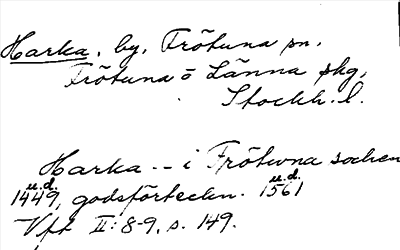 Harka, by, Frötuna sn.
Frötuna ō Länna skg,
Stockh. l.
Harka -- i Frötwna sochen
u.d. u.d.
1449, godsförteckn. 1561
Vft II: 8-9, s. 149.